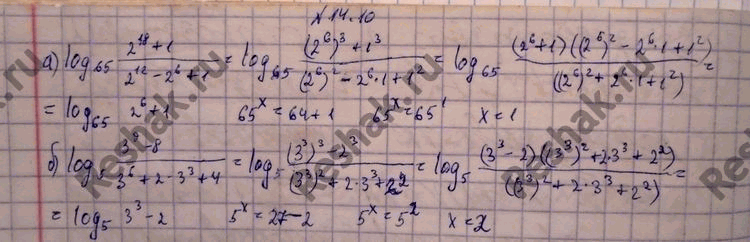 №14.10
а) log₆₅ (2¹⁸+1)/(2¹²-2⁶+1) = log₆₅ ((2⁶)³+1³)/((2⁶)²-2⁶·1+1²) = log₆₅ ((2⁶+1)((2⁶)²-2⁶·1+1²))/((2⁶)²+2⁶·1+1²) =
= log₆₅ 2⁶+1 65ˣ=64+1 65ˣ=65¹ x=1
б) log₅ (3⁹-8)/(3⁶+2·3³+4) = log₅ ((3³)³-2³)/((3³)²+2·3³+2²) = log₅ ((3³-2)((3³)²+2·3³+2²))/((3³)²+2·3³+2²) =
= log₅ 3³-2 5ˣ=27-2 5ˣ=5² x=2
Reshak.ru
Reshak.ru
Reshak.ru
Reshak.ru